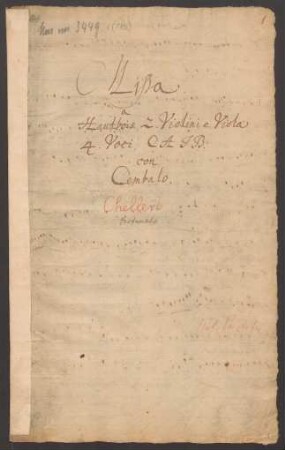 Mus. ms. 3444
1
Missa
à
Hautbois 2 Violini e Viola
4. Voci. C A T B.
con
Cembalo.
Chelleri
Fortunato